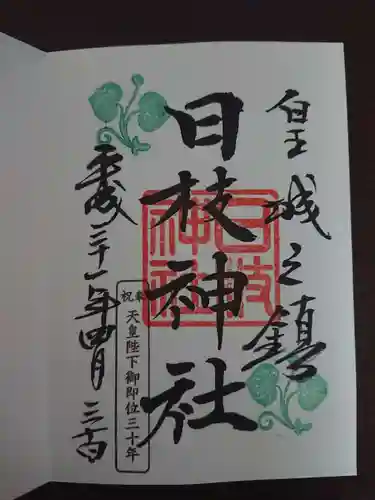 皇城之鎮
日枝神社
日枝神社
奉祝 天皇陛下御即位三十年
平成三十一年四月三日